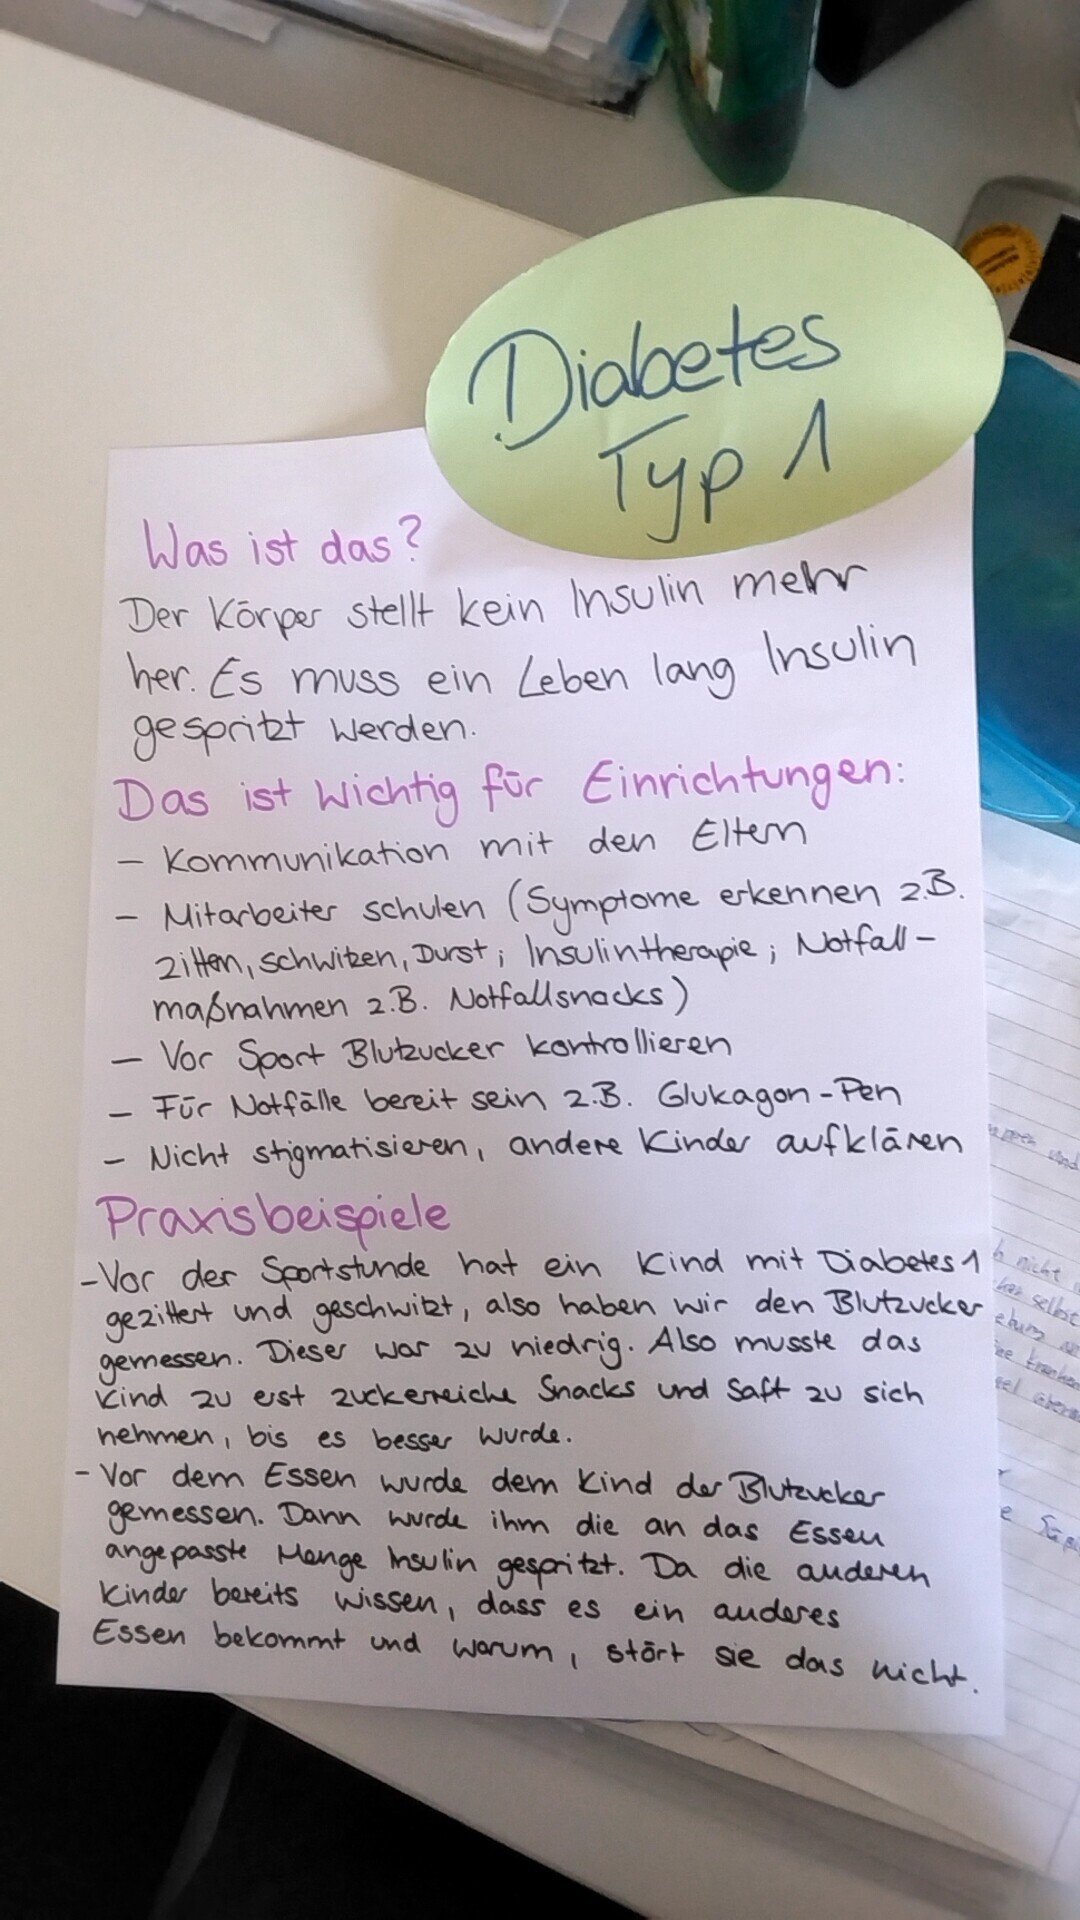 Diabetes
Typ 1
Was ist das?
Der Körper stellt kein Insulin mehr
her. Es muss ein Leben lang Insulin
gespritzt werden.
Das ist wichtig für Einrichtungen:
- Kommunikation mit den Eltern
- Mitarbeiter schulen (Symptome erkennen z.B.
zittern, schwitzen, Durst; Insulintherapie; Notfall-
maßnahmen z.B. Notfallsnacks)
- Vor Sport Blutzucker kontrollieren
- Für Notfälle bereit sein z.B. Glukagon-Pen
- Nicht stigmatisieren, andere Kinder aufklären
Praxisbeispiele
- Vor der Sportstunde hat ein Kind mit Diabetes 1
gezittert und geschwitzt, also haben wir den Blutzucker
gemessen. Dieser war zu niedrig. Also musste das
Kind zu erst zuckerreiche Snacks und Saft zu sich
nehmen, bis es besser wurde.
- Vor dem Essen wurde dem Kind der Blutzucker
gemessen. Dann wurde ihm die an das Essen
angepasste Menge Insulin gespritzt. Da die anderen
Kinder bereits wissen, dass es ein anderes
Essen bekommt und warum, stört sie das nicht.
nicht
selbst